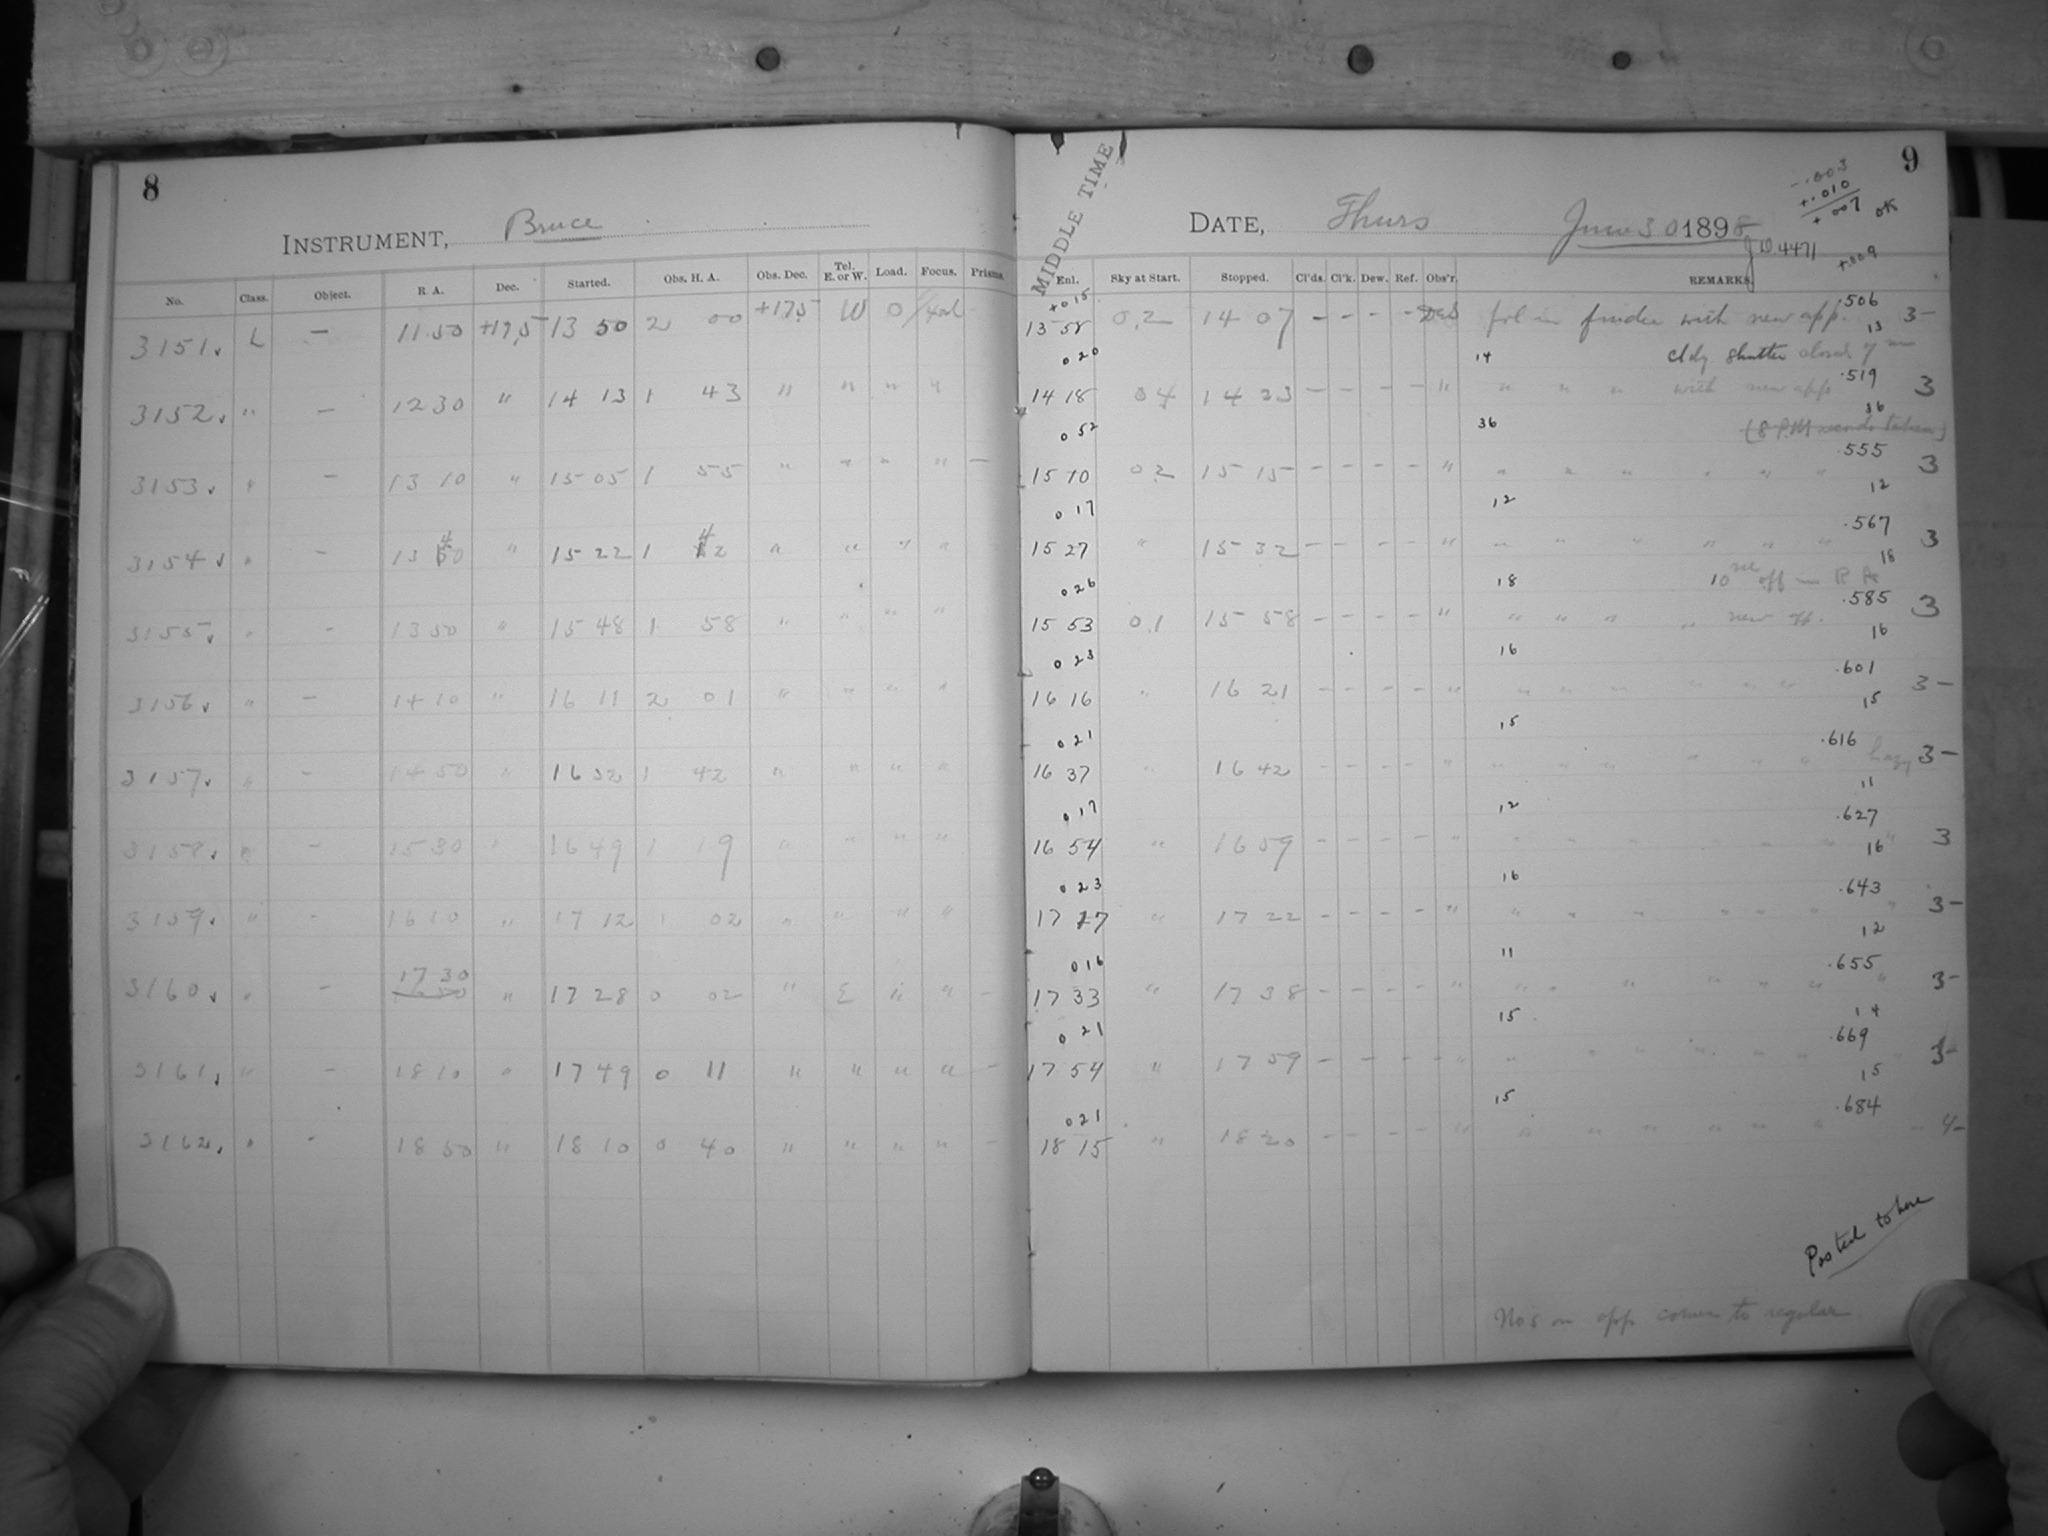 8
INSTRUMENT, Bruce
No. Class. Object. R. A. Dec. Started. Obs. H. A. Obs. Dec. Tel. E. or W. Load. Focus. Prisms.
3151 L — 11 50 +17,5 13 50 2 00 +17,5 W 0
3152 " — 12 30 " 14 13 1 43 " " " "
3153 " — 13 10 " 15 05 1 55 " " " " —
3154 " - 13 40 " 15 22 1 42 " " " "
3155 " - 13 50 " 15 48 1 58 " " " "
3156 " — 14 10 " 16 11 2 01 " " " "
3157 " - 14 50 " 16 32 1 42 " " " "
3158 " - 15 30 " 16 49 1 19 " " " "
3159 " - 16 10 " 17 12 1 02 " " " "
3160 " - 17 30 " 17 28 0 02 " E " " -
3161 " - 18 10 " 17 49 0 11 " " " " -
3162 " - 18 50 " 18 10 0 40 " " " " -
9
MIDDLE TIME
DATE, Thurs June 30 1898
J.D. 4471
-.003
+.010
+.007 OK
+.009
Enl. Sky at Start. Stopped. Cl'ds. Cl'k. Dew. Ref. Obs'r. REMARKS.
+015 .506
13 58 0,2 14 07 - - - - fol in finder with new app. 3-
13
020 14 cldy shutter closed 7 m
.519
14 18 04 14 23 - - - - " " " " with new app 3
36
052 36 (8 P.M. records taken)
.555
15 10 02 15 15 - - - - " " " " " " " 3
12
017 12
.567
15 27 " 15 32 - - - - " " " " " " " 3
18
026 18 10 m off in R A
.585
15 53 0.1 15 58 - - - - " " " " " new app. 3
16
023 16
.601
16 16 " 16 21 - - - - " " " " " " " 3-
15
021 15
.616
16 37 " 16 42 - - - - " " " " " " " hazy 3-
11
017 12
.627
16 54 " 16 59 - - - - " " " " " " " " 3
16
023 16
.643
17 17 " 17 22 - - - - " " " " " " " " 3-
12
016 11
.655
17 33 " 17 38 - - - - " " " " " " " " 3-
14
021 15
.669
17 54 " 17 59 - - - - " " " " " " " " 3-
15
021 15
.684
18 15 " 18 20 - - - - " " " " " " " " 4-
Posted to here
Nos on opp corner to regular